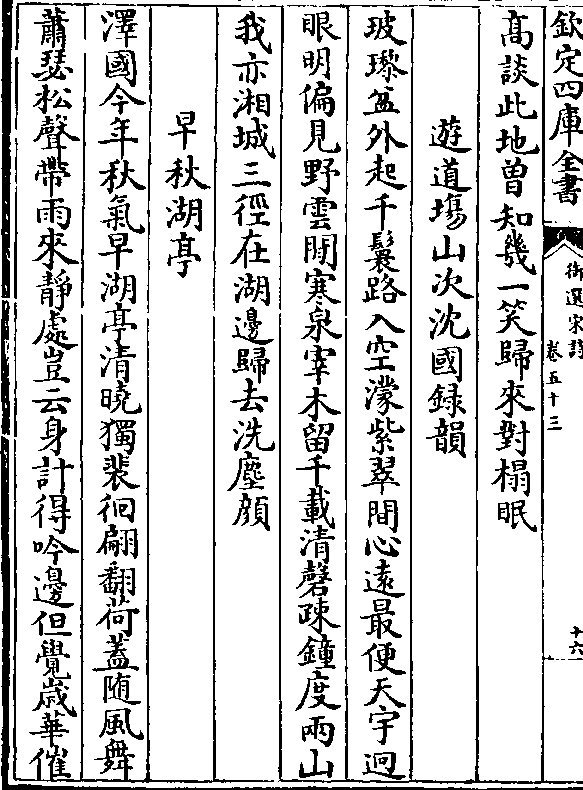 欽定四庫全書
御選宋詩
卷五十三
十六
髙談此地曽知㡬一笑歸來對榻眠
遊道塲山次沈國録韻
玻瓈盆外起千鬟路入空濛紫翠間心逺最便天宇逈
眼明偏見野雲閒寒泉宰木留千載清磬疎鐘度兩山
我亦湘城三徑在湖邊歸去洗塵顔
早秋湖亭
澤國今年秋氣早湖亭清曉獨裴徊翩翻荷蓋随風舞
蕭瑟松聲帶雨來靜處豈云身計得吟邊但覺歳華催